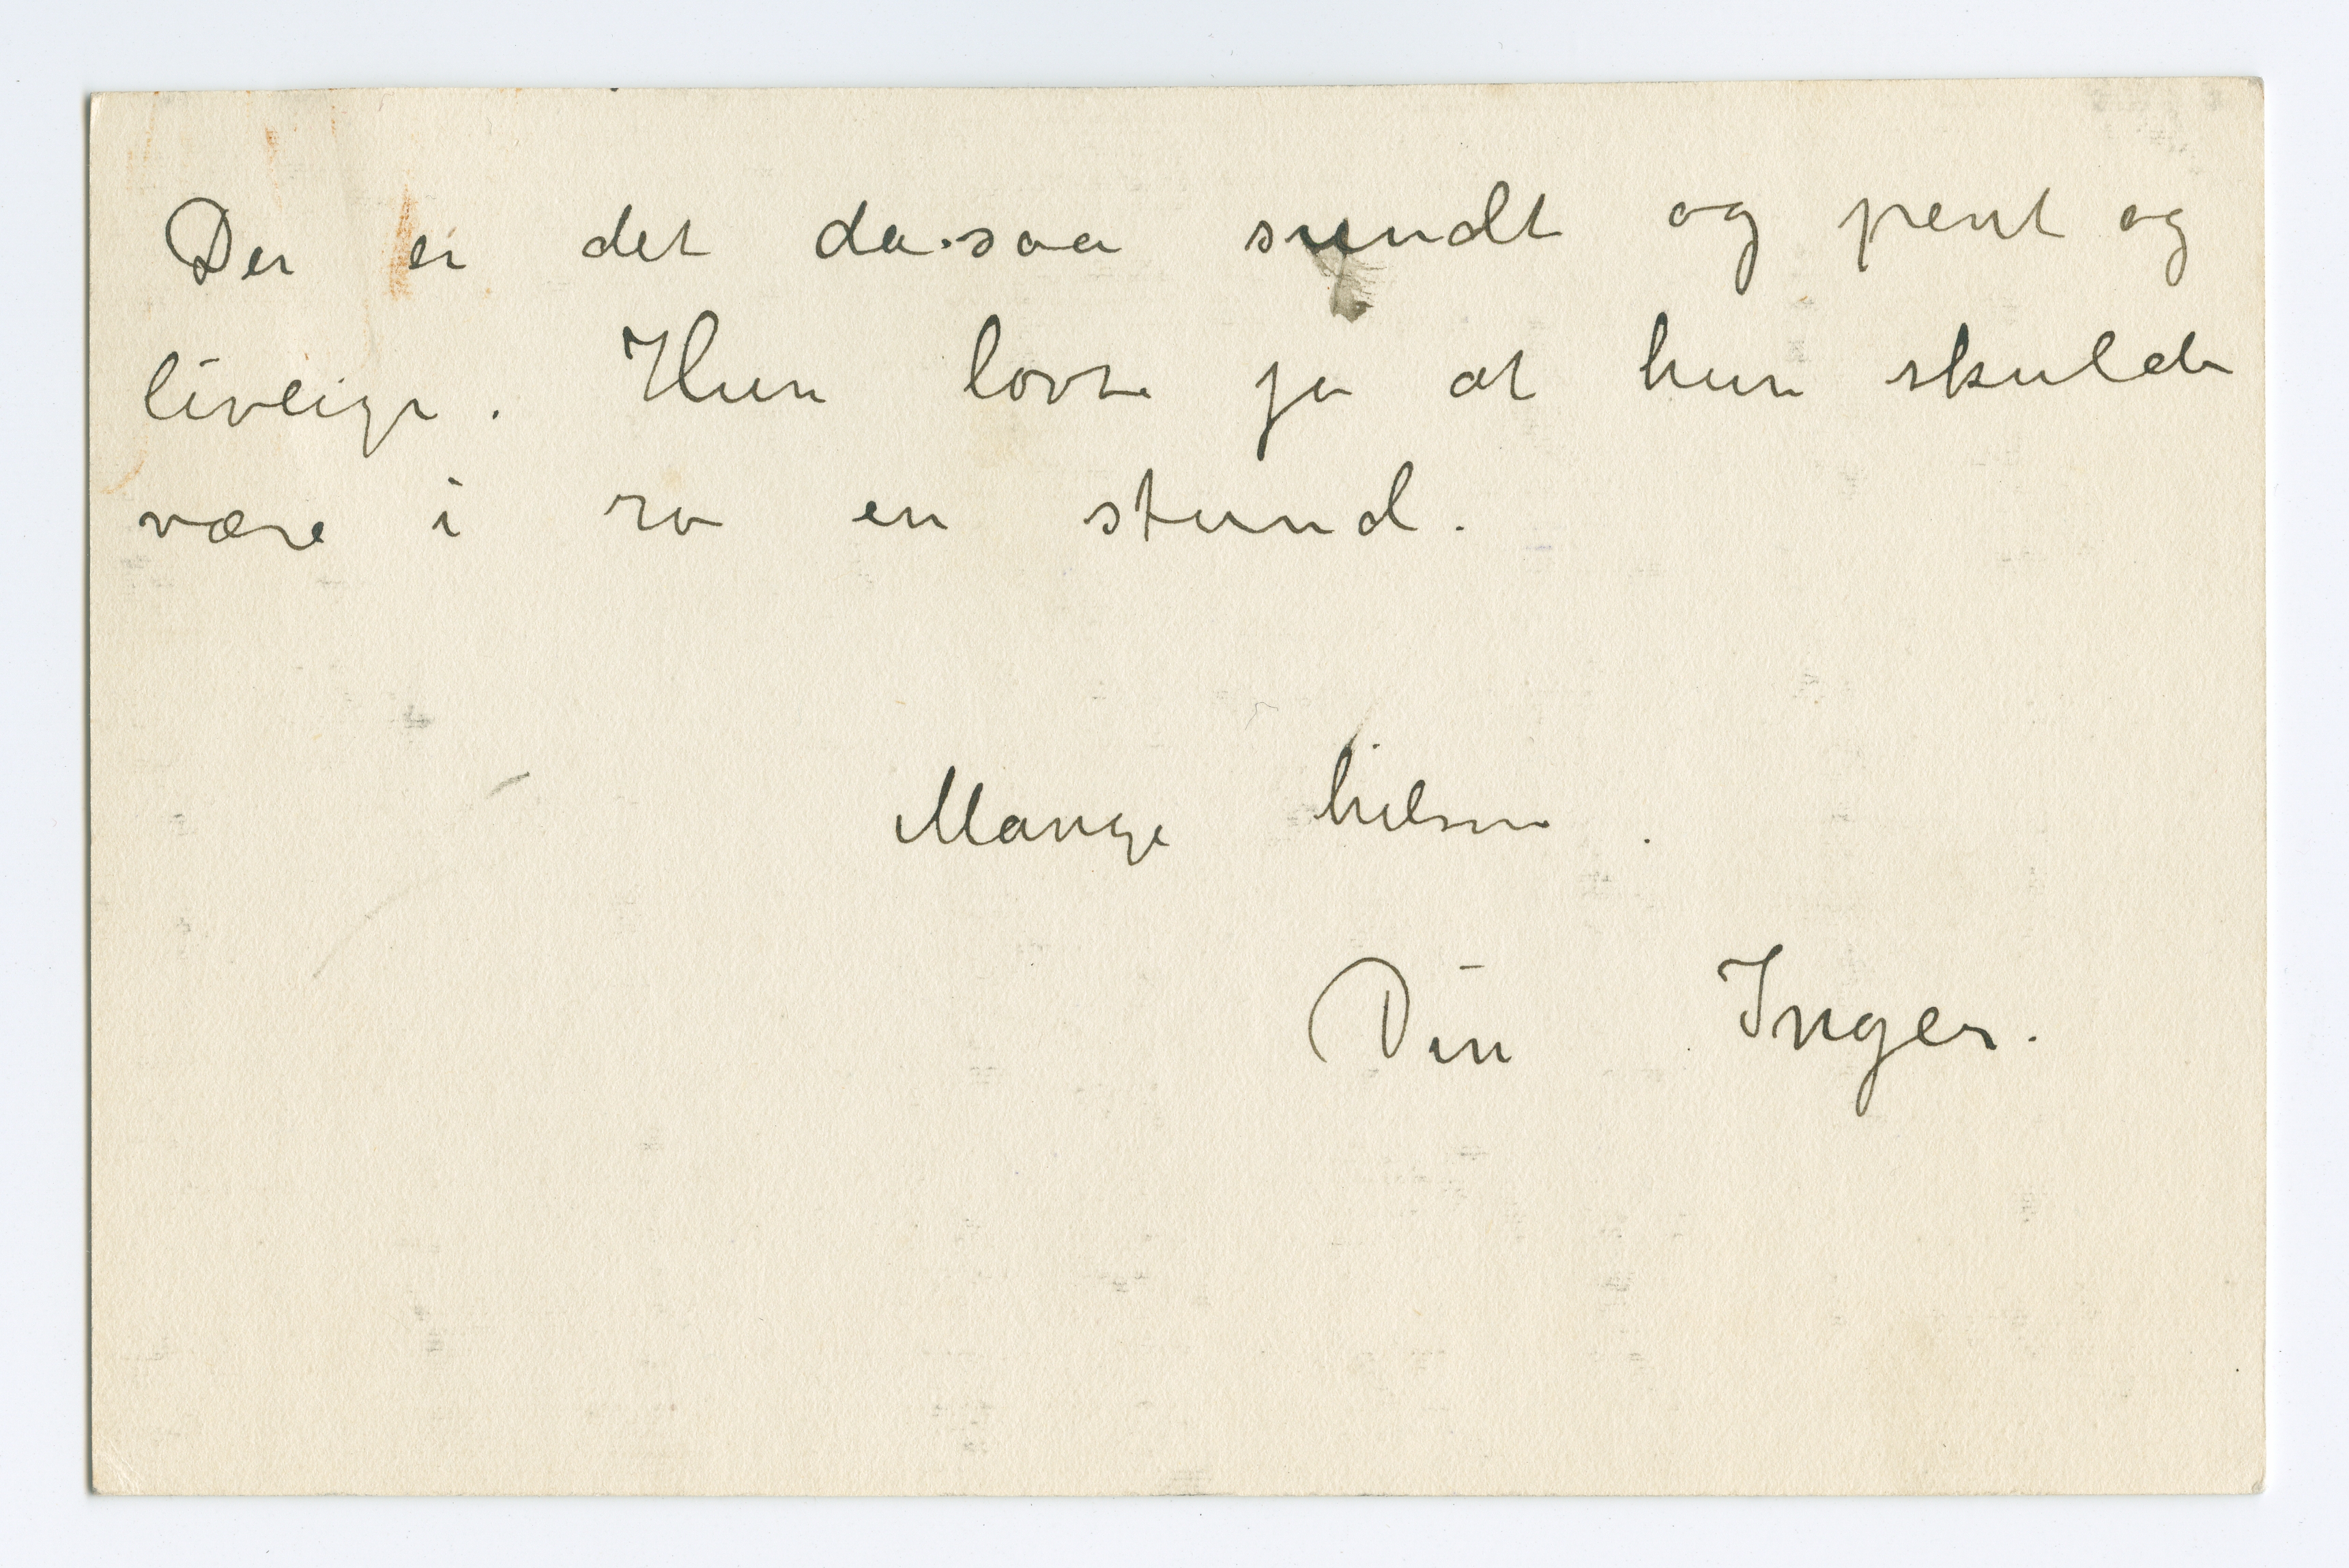 Der er det da saa sundt og pent og
livlige. Hun lovte jo at hun skulde
være i ro en stund.
Mange hilsen.
Din Inger.